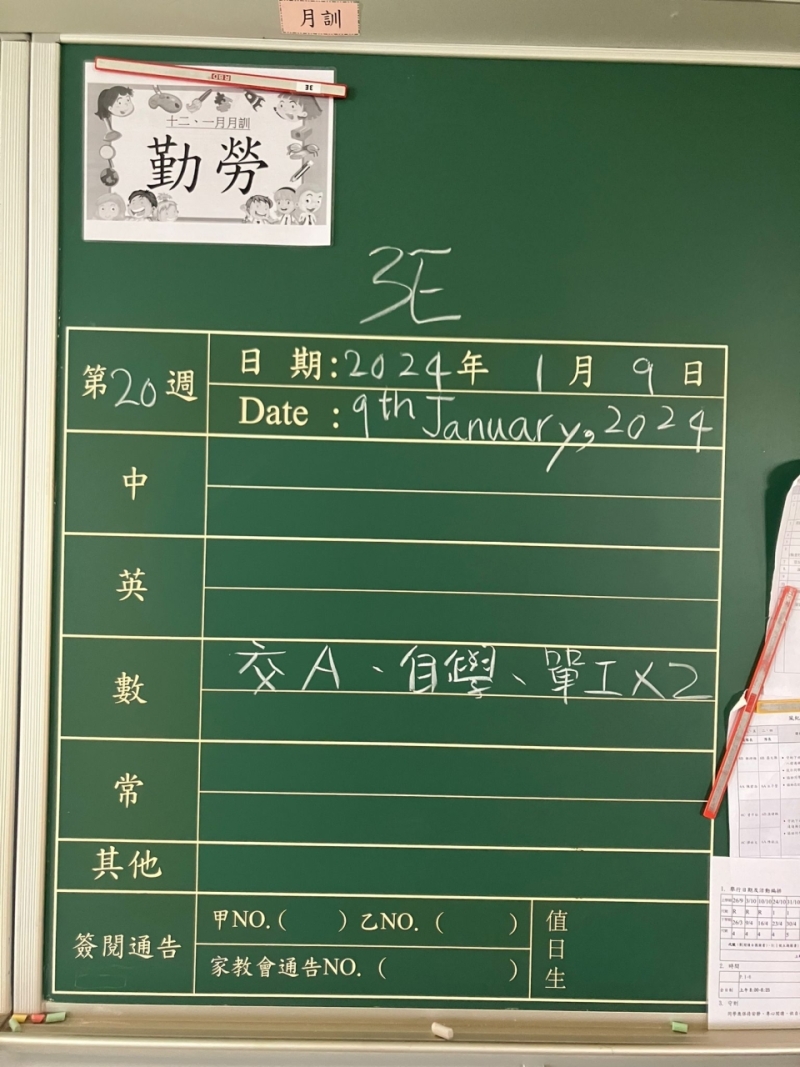 月訓
十二、一月月訓
勤勞
3E
3E
第20週
日期:2024年 1月 9日
Date : 9th January, 2024
中
英
數 交A、自學、單工X2
常
其他
簽閱通告
甲NO.( ) 乙NO. ( )
家教會通告NO. ( )
值日生
1. 舉行日期及活動編排
2. 時間
3. 守則